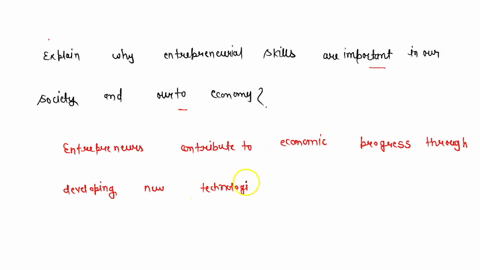 Explain why entrepreneurial skills are important in our
society and our to economy?
Entrepreneurs contribute to economic progress through
developing new technologi